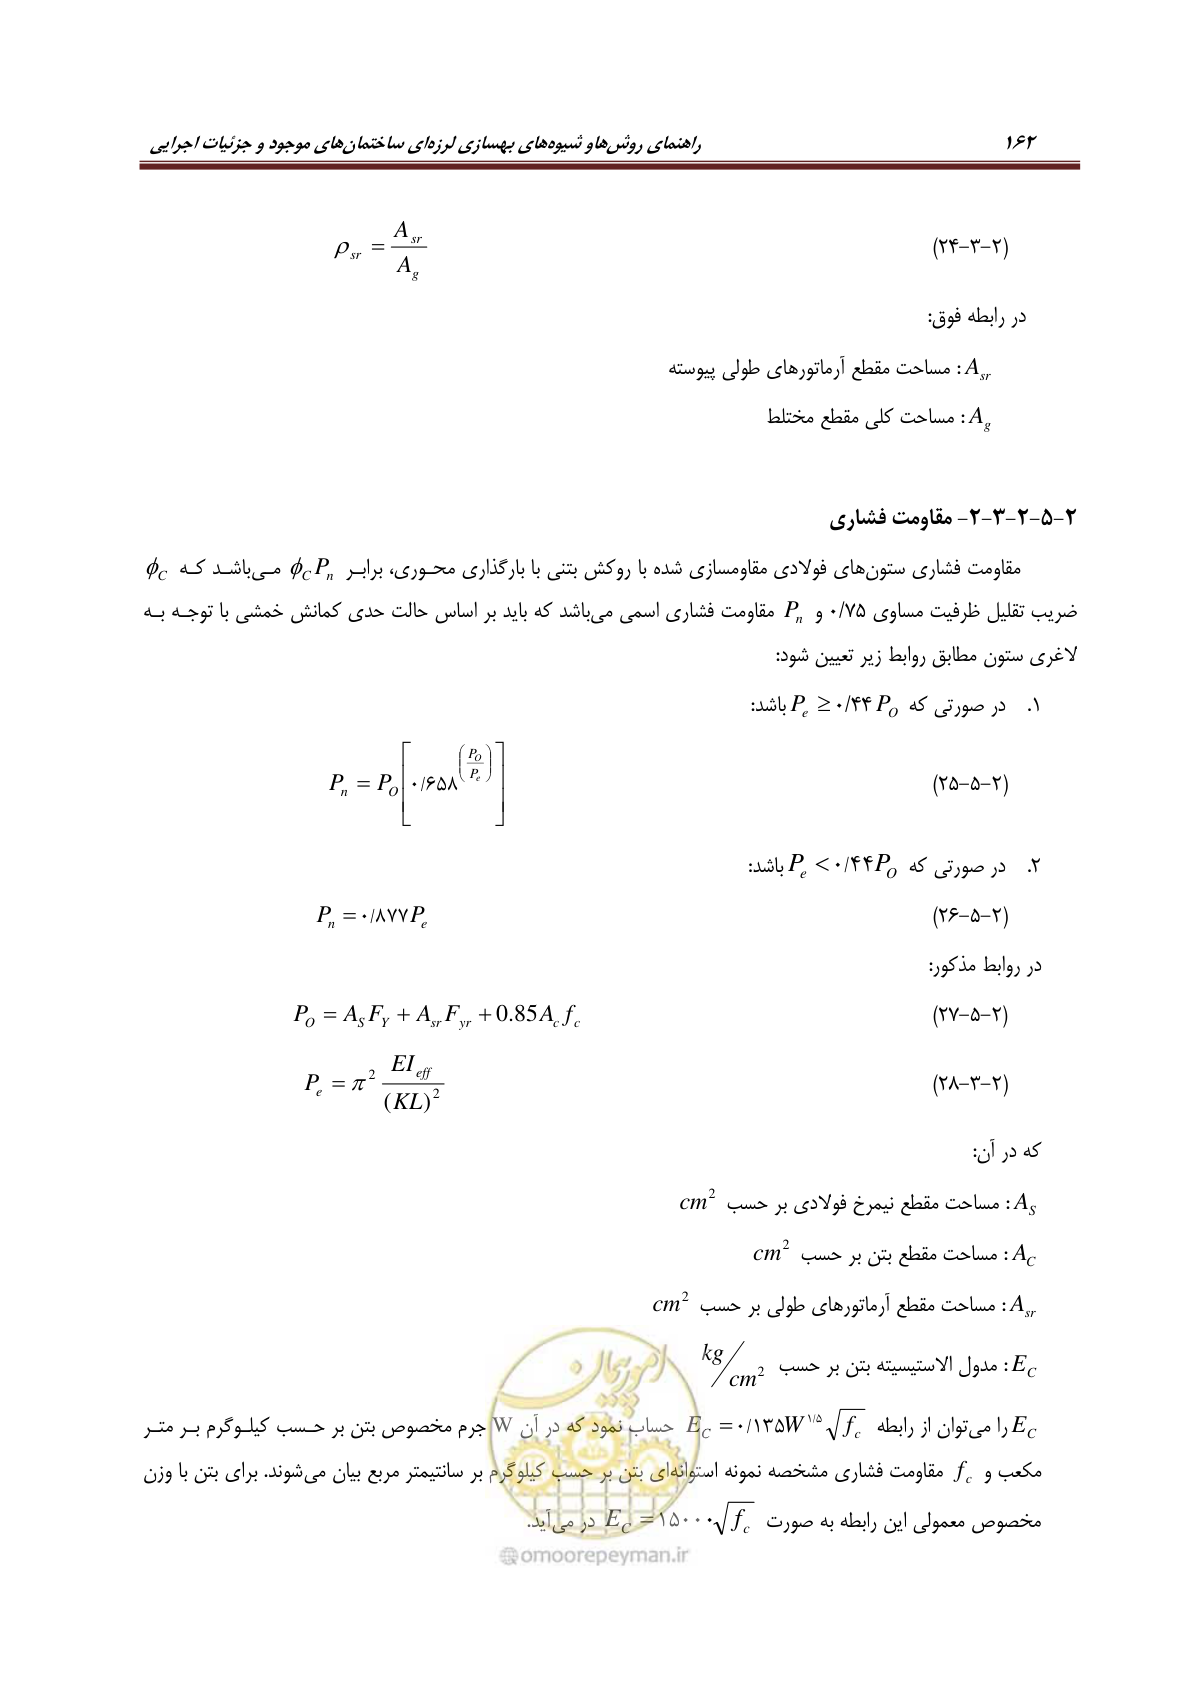 ۱۶۲ راهنمای روش‌هاو شیوه‌های بهسازی لرزه‌ای ساختمان‌های موجود و جزئیات اجرایی
(۲-۳-۲۴) ρ_sr = A_sr / A_g
در رابطه فوق:
A_sr : مساحت مقطع آرماتورهای طولی پیوسته
A_g : مساحت کلی مقطع مختلط
۲-۵-۲-۳-۲- مقاومت فشاری
مقاومت فشاری ستون‌های فولادی مقاومسازی شده با روکش بتنی با بارگذاری محوری، برابر ϕ_C P_n می‌باشد که ϕ_C
ضریب تقلیل ظرفیت مساوی ۰/۷۵ و P_n مقاومت فشاری اسمی می‌باشد که باید بر اساس حالت حدی کمانش خمشی با توجه به
لاغری ستون مطابق روابط زیر تعیین شود:
۱. در صورتی که P_e ≥ ۰/۴۴ P_O باشد:
(۲-۵-۲۵) P_n = P_O [ ۰/۶۵۸^(P_O / P_e) ]
۲. در صورتی که P_e < ۰/۴۴ P_O باشد:
(۲-۵-۲۶) P_n = ۰/۸۷۷ P_e
در روابط مذکور:
(۲-۵-۲۷) P_O = A_S F_Y + A_sr F_yr + 0.85 A_c f_c
(۲-۳-۲۸) P_e = π² EI_eff / (KL)²
که در آن:
A_S : مساحت مقطع نیمرخ فولادی بر حسب cm²
A_C : مساحت مقطع بتن بر حسب cm²
A_sr : مساحت مقطع آرماتورهای طولی بر حسب cm²
E_C : مدول الاستیسیته بتن بر حسب kg/cm²
E_C را می‌توان از رابطه E_C = ۰/۱۳۵W^۱/۵ √f_c حساب نمود که در آن W جرم مخصوص بتن بر حسب کیلوگرم بر متر
مکعب و f_c مقاومت فشاری مشخصه نمونه استوانه‌ای بتن بر حسب کیلوگرم بر سانتیمتر مربع بیان می‌شوند. برای بتن با وزن
مخصوص معمولی این رابطه به صورت E_C = ۱۵۰۰۰√f_c در می‌آید.
امور پیمان
@omoorepeyman.ir